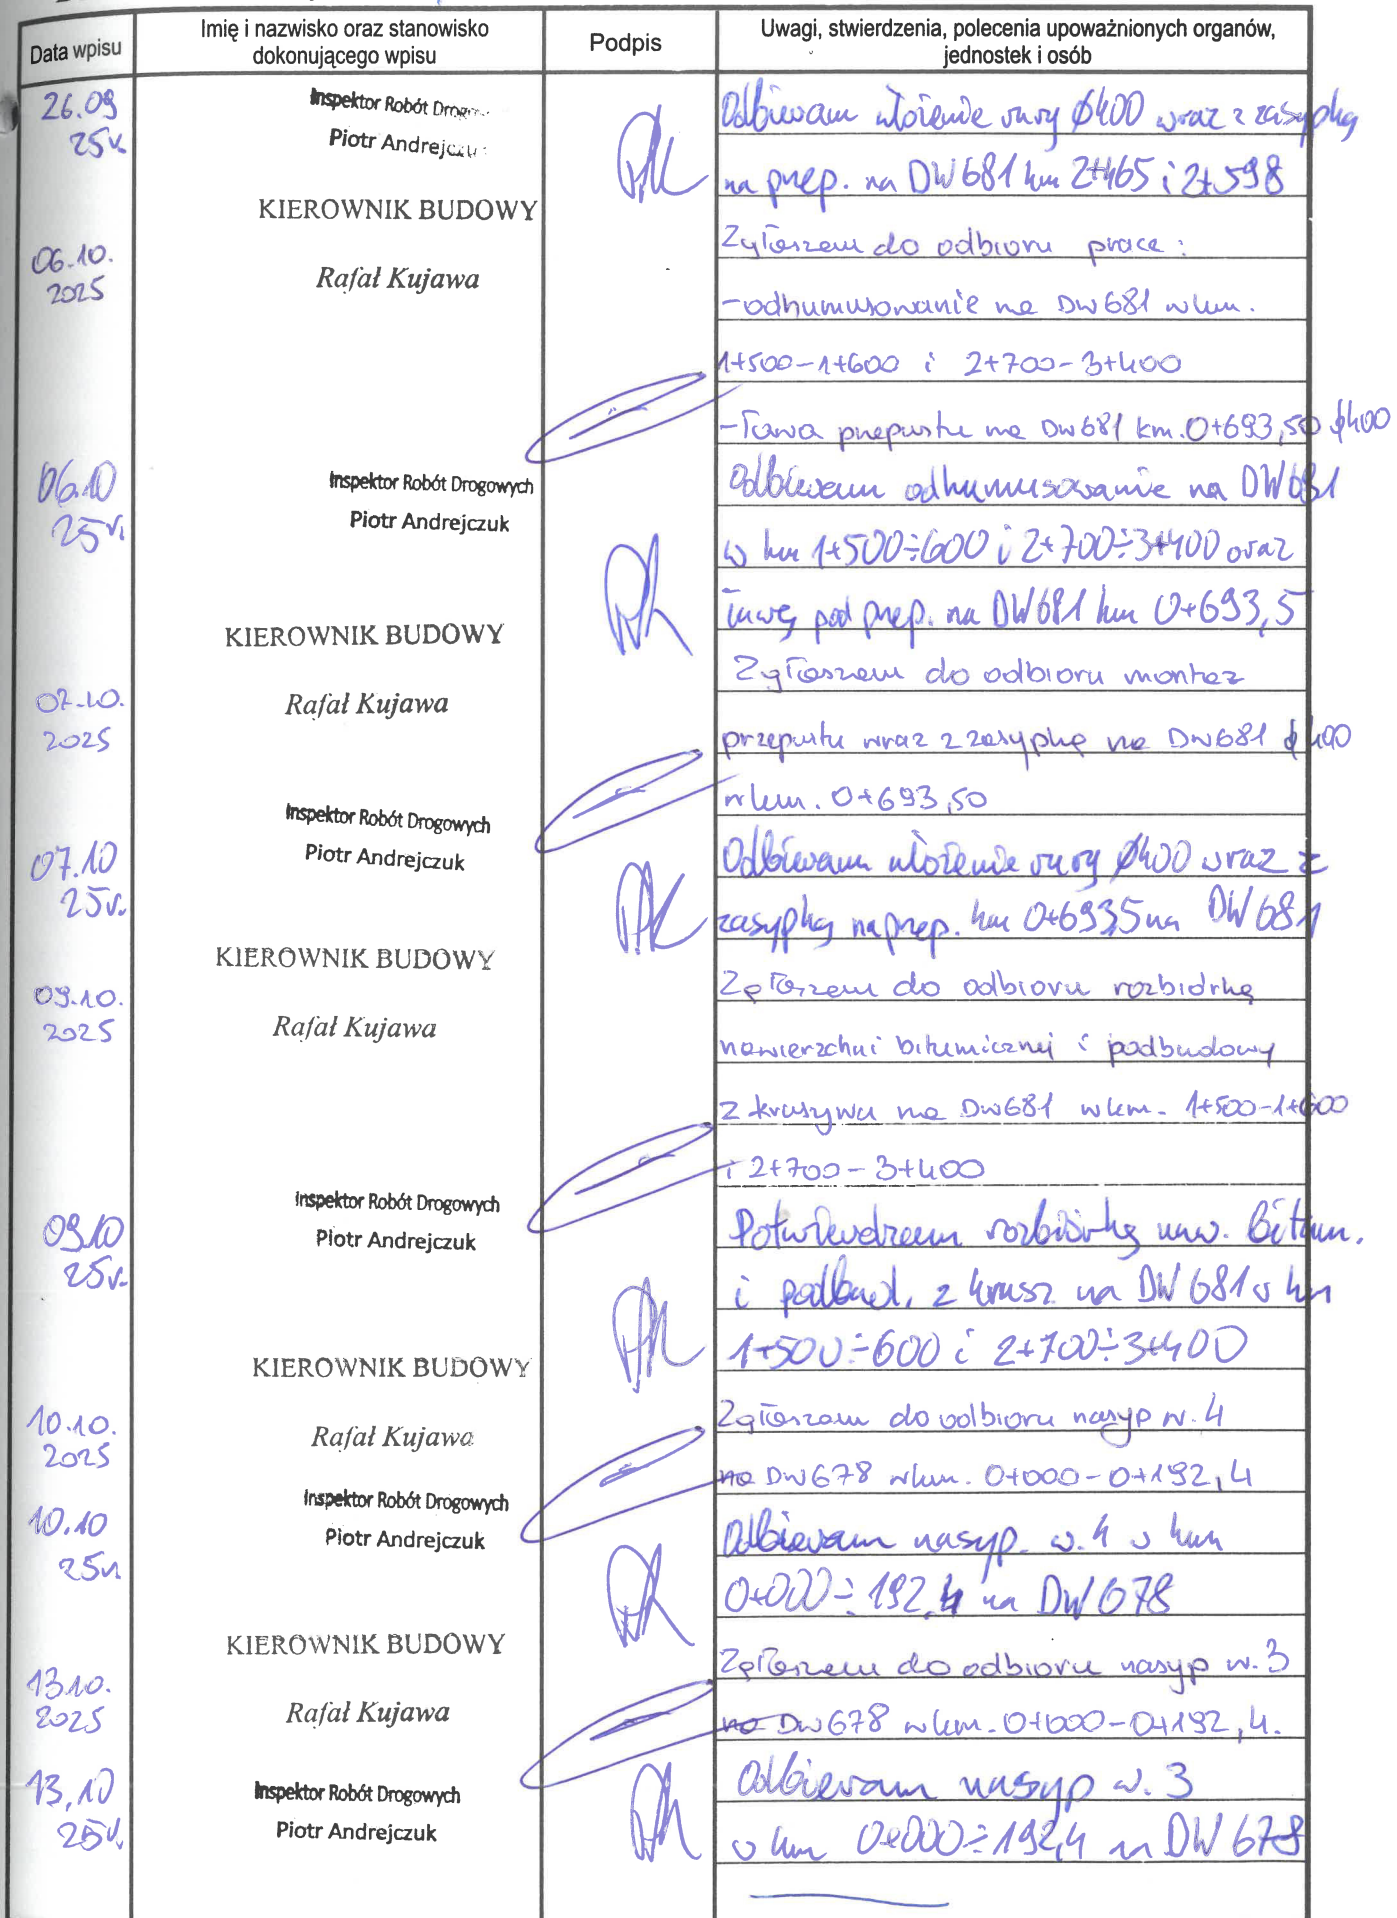 Data wpisu
Imię i nazwisko oraz stanowisko
dokonującego wpisu
Podpis
Uwagi, stwierdzenia, polecenia upoważnionych organów,
jednostek i osób
26.09
25r.
Inspektor Robót Drogo
Piotr Andrejczu
Odbieram ułożenie rury ϕ400 wraz z zasypką
na przep. na DW681 km 2+465 i 2+598
06.10.
2025
KIEROWNIK BUDOWY
Rafał Kujawa
Zgłaszam do odbioru prace:
- odhumusowanie na DW681 w km.
1+500-1+600 i 2+700-3+400
- Ława przepustu na DW681 km. 0+693,50 ϕ400
06.10
25r.
Inspektor Robót Drogowych
Piotr Andrejczuk
Odbieram odhumusowanie na DW681
w km 1+500÷600 i 2+700÷3+400 oraz
ławę pod przep. na DW681 km 0+693,5
07.10.
2025
KIEROWNIK BUDOWY
Rafał Kujawa
Zgłaszam do odbioru montaż
przepustu wraz z zasypką na DW681 ϕ400
w km. 0+693,50
07.10
25r.
Inspektor Robót Drogowych
Piotr Andrejczuk
Odbieram ułożenie rury ϕ400 wraz z
zasypką na przep. km 0+693,5 na DW681
09.10.
2025
KIEROWNIK BUDOWY
Rafał Kujawa
Zgłaszam do odbioru rozbiórkę
nawierzchni bitumicznej i podbudowy
z kruszywa na DW681 w km. 1+500-1+600
i 2+700-3+400
09.10
25r.
Inspektor Robót Drogowych
Piotr Andrejczuk
Potwierdzam rozbiórkę naw. bitum.
i podbud. z krusz na DW681 w km
1+500÷600 i 2+700÷3+400
10.10.
2025
KIEROWNIK BUDOWY
Rafał Kujawa
Zgłaszam do odbioru nasyp w. 4
na DW678 w km. 0+000-0+192,4
10.10
25r.
Inspektor Robót Drogowych
Piotr Andrejczuk
Odbieram nasyp. w. 4 w km
0+000÷192,4 na DW678
13.10.
2025
KIEROWNIK BUDOWY
Rafał Kujawa
Zgłaszam do odbioru nasyp w. 3
na DW678 w km. 0+000-0+192,4.
13.10
25r.
Inspektor Robót Drogowych
Piotr Andrejczuk
Odbieram nasyp w. 3
w km 0+000÷192,4 na DW678